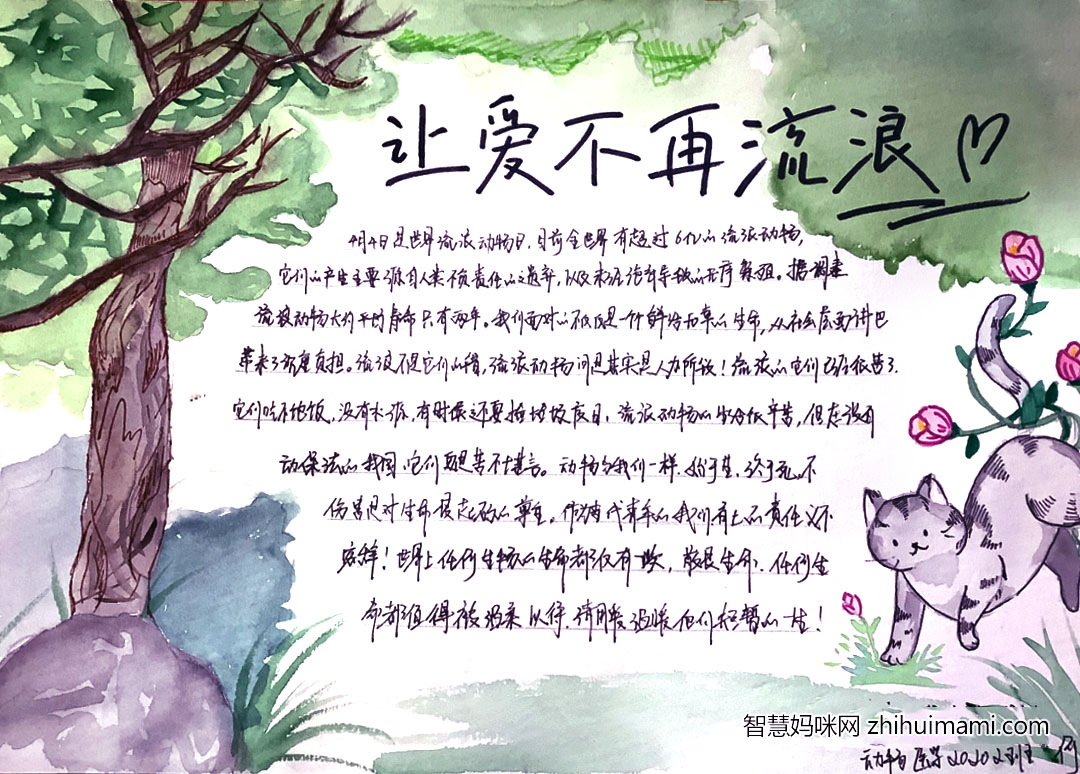 让爱不再流浪
4月4日是世界流浪动物日,目前全世界有超过6亿的流浪动物,
它们的产生主要源自人类不负责任的遗弃,以及未绝育导致的无序繁殖。据调查
流浪动物大约平均寿命只有两年。我们面对的不仅仅是一个鲜活力的生命,从社会层面讲已
带来了沉重负担。流浪不是它们的错,流浪动物问题其实是人为所致!流浪的它们已经很苦了.
它们吃不饱饭,没有水源,有时候还要挨饿度日,流浪动物的生活很辛苦,但在没有
动保法的我国,它们更是苦不堪言。动物与我们一样,始于生,终于死,不
伤害是对生命最起码的尊重。作为当代青年的我们有的责任义不
容辞!世界上任何生物的生命都仅有一次,敬畏生命.任何生
命都值得被温柔以待.请用爱温暖他们短暂的一生!
智慧妈咪网 zhihuimami.com
动物医学20202班